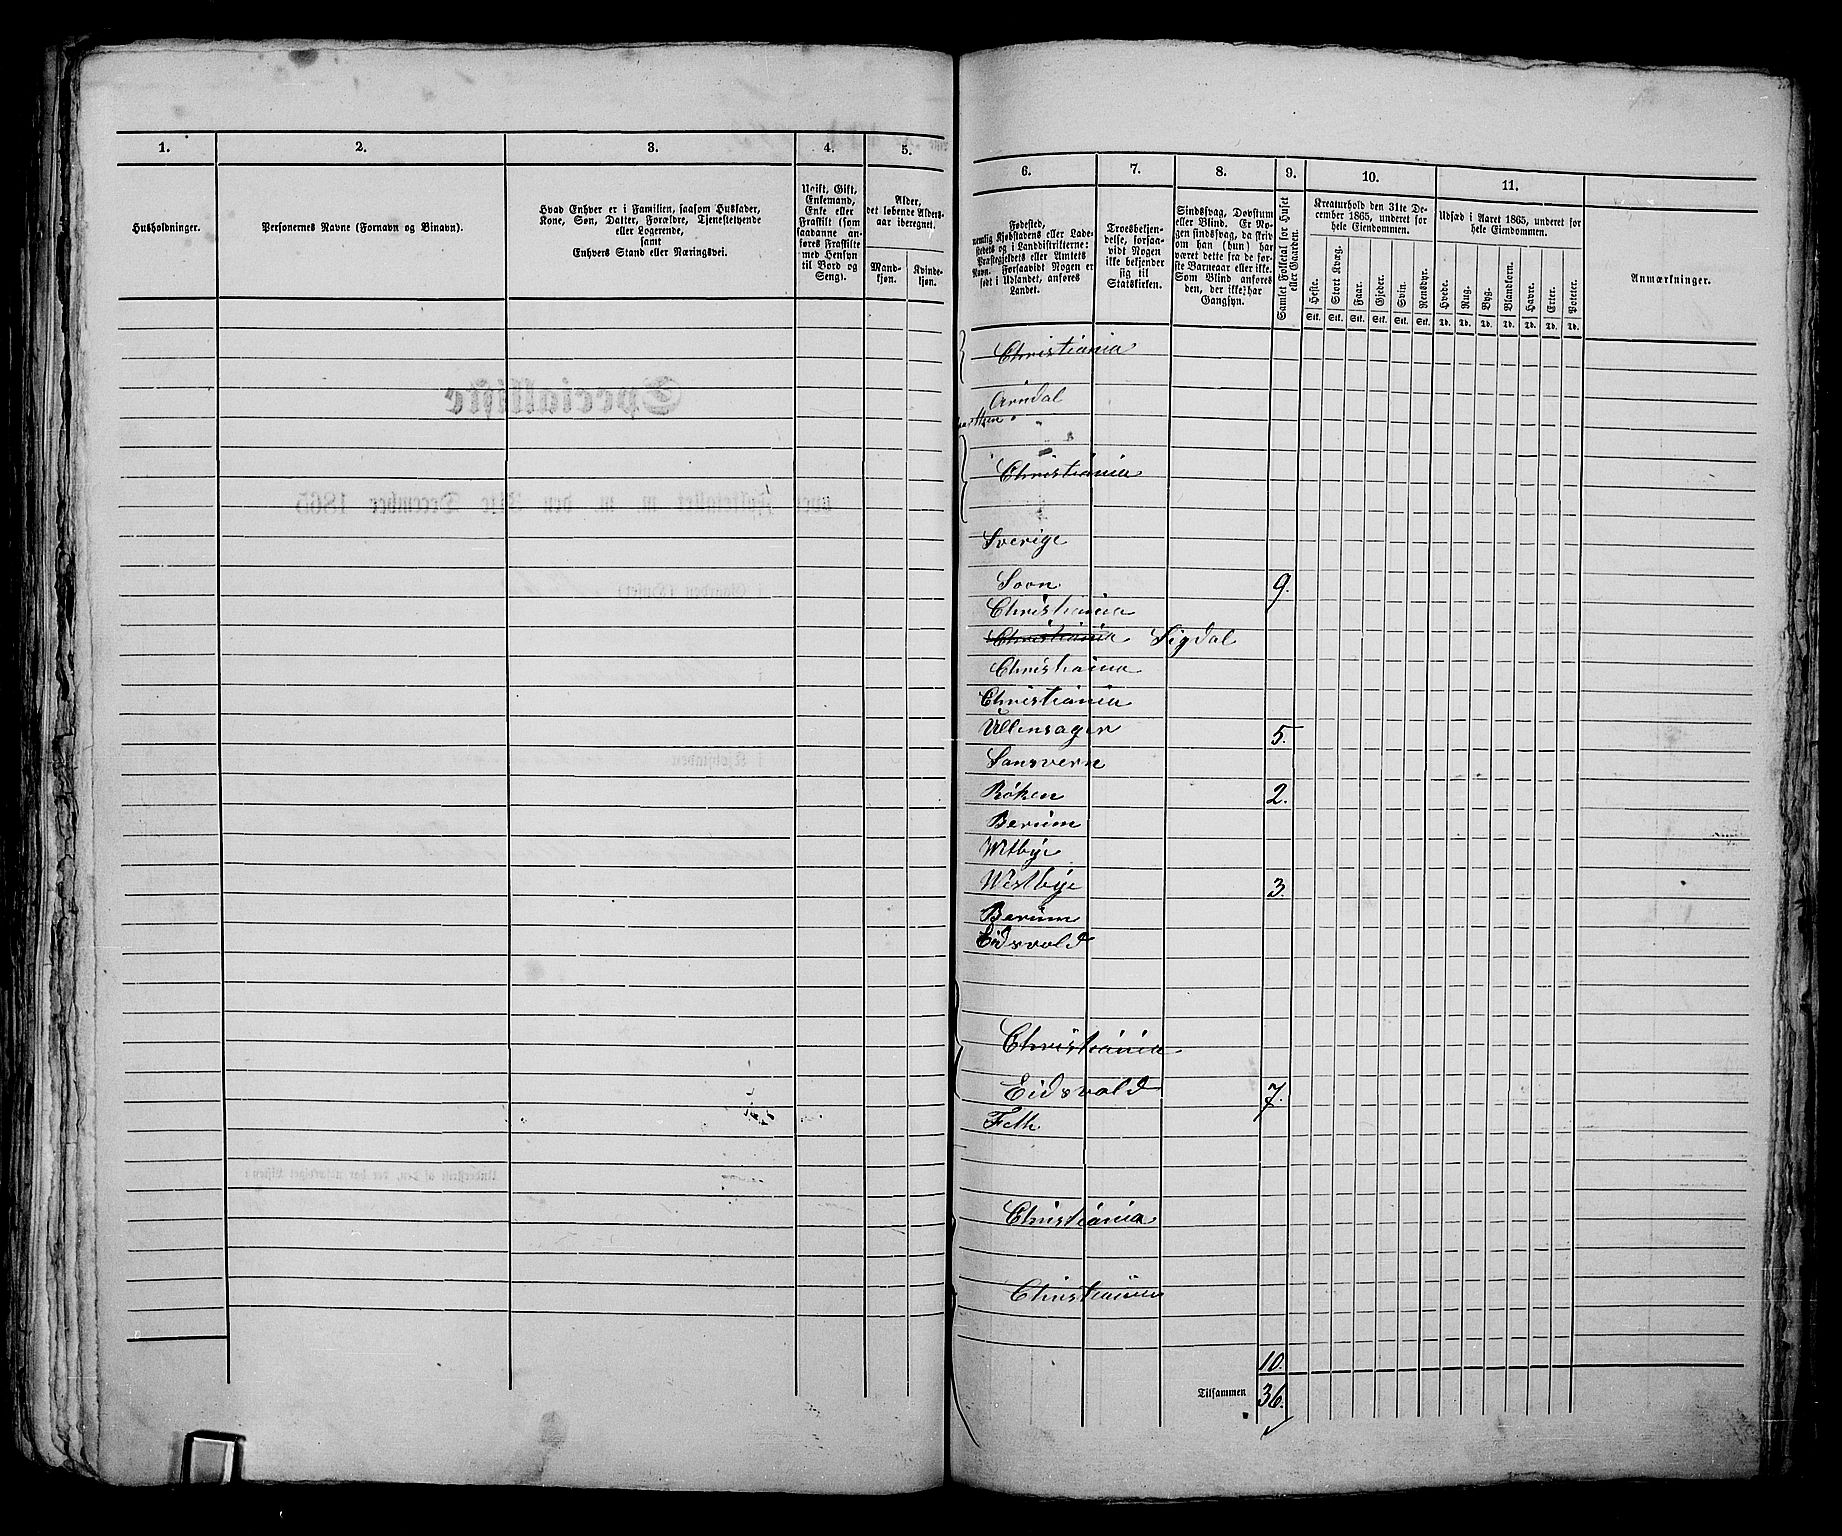 1.
2.
3.
4.
5.
Husholdninger.
Personernes Navne (Fornavn og Binavn).
Hvad Enhver er i Familien, saasom Husfader,
Kone, Søn, Datter, Forældre, Tjenestetyende
eller Logerende,
samt
Enhvers Stand eller Næringsvei.
Ugift, Gift,
Enkemand,
Enke eller
Fraskilt (som
saadanne an-
føres Fraskilte
med Hensyn
til Bord og
Seng).
Alder,
det løbende Alders-
aar iberegnet.
Mand-
kjøn.
Kvinde-
kjøn.
6.
7.
8.
9.
10.
11.
Fødested,
nemlig Kjøbstadens eller Lade-
stedets og i Landdistrikterne:
Præstegjeldets eller Amtets
Navn. Forsaavidt Nogen er
født i Udlandet, anføres
Landet.
Troesbekjen-
delse, forsaa-
vidt Nogen
ikke bekjender
sig til
Statskirken.
Sindssvag, Døvstum
eller Blind. Er No-
gen sindssvag, da skriv
om han (hun) har
været dette fra de før-
ste Barneaar eller ikke.
Som Blind anføres
den, der ikke har
Gangsyn.
Samlet Folketal for Huset
eller Gaarden.
Kreaturhold den 31te De-
cember 1865, underet for
hele Eiendommen.
Heste.
Stort Kvæg.
Faar.
Gjeder.
Svin.
Rensdyr.
Stk. Stk. Stk. Stk. Stk. Stk.
Udsæd i Aaret 1865, underet for
hele Eiendommen.
Hvede.
Rug.
Byg.
Blandkorn.
Havre.
Erter.
Poteter.
Td. Td. Td. Td. Td. Td. Td.
Anmærkninger.
Christiania
Arndal
"
Christiania
Sverige
Soon 9.
Christiania
Christiania Sigdal
Christiania
Christiania
Ullensager 5.
Sansvern
Røken 2.
Berüm
Wetbye
Westbye 3.
Berüm
Eidsvold
Christiania
Eidsvold 7.
Feth
Christiania
Christiania
10.
Tilsammen 36.